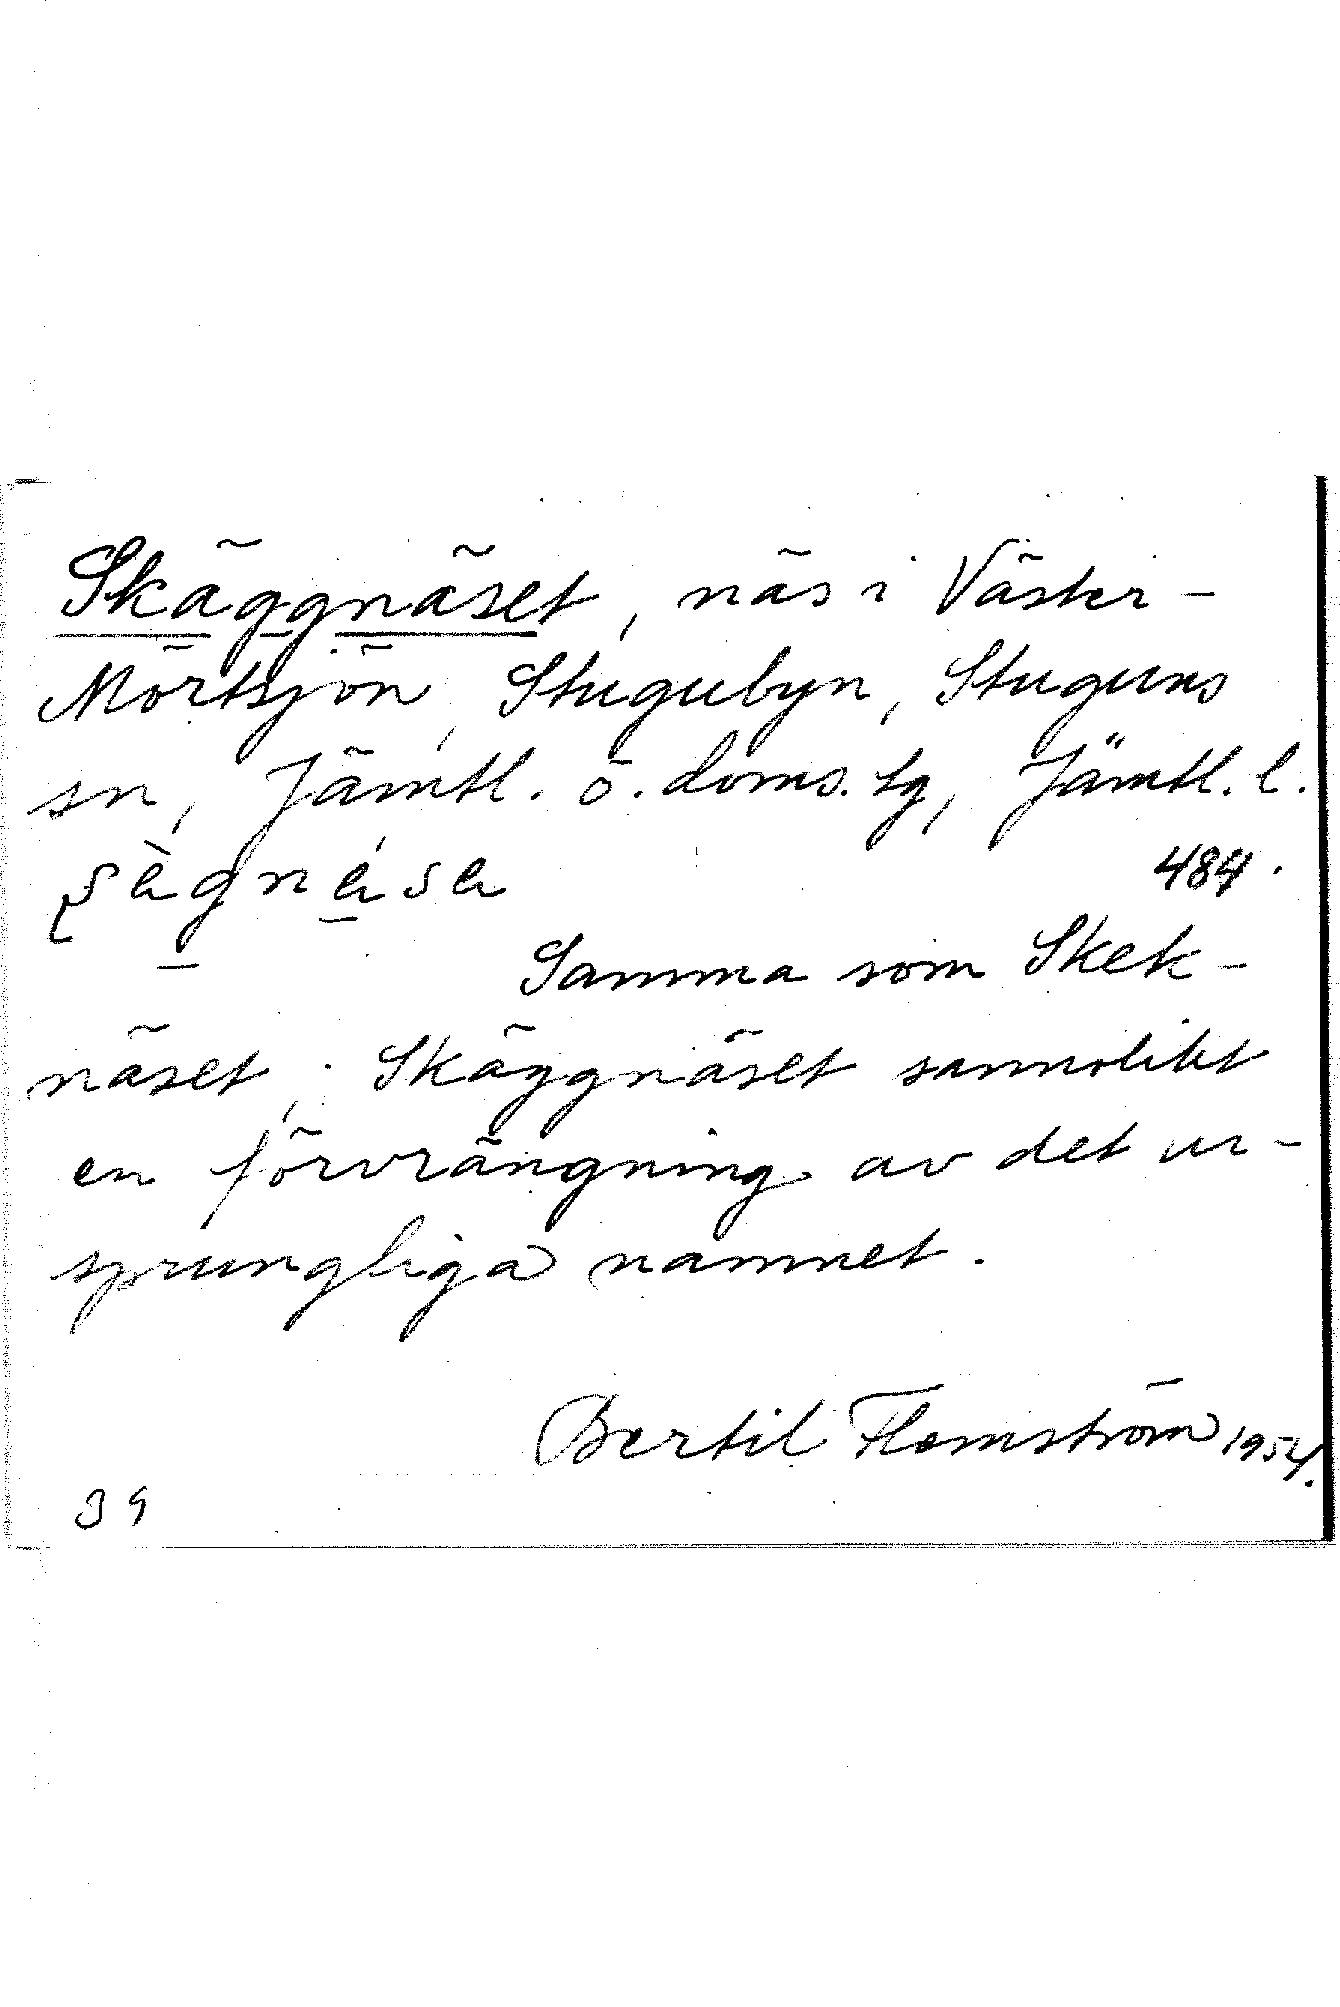 Skäggnäset, näs i Väster-
Mörtsjön, Stugubyn, Stuguns
sn, Jämtl. ö. doms. tg, Jämtl. l.
484.
Samma som Skek-
näset. Skäggnäset sannolikt
en förvrängning av det ur-
sprungliga namnet.
Bertil Flemström 1954.
39